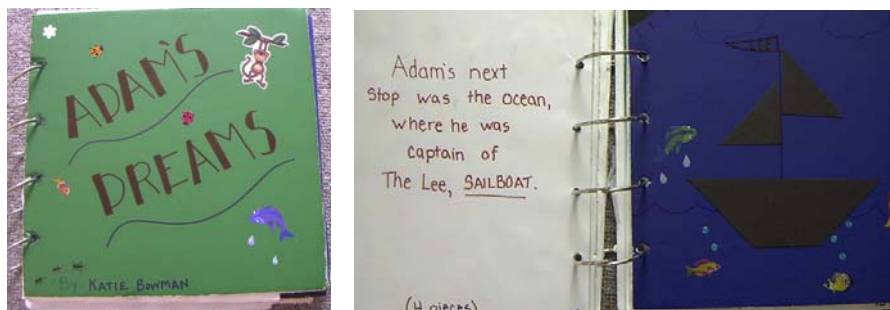 ADAM'S
DREAMS
By KATIE BOWMAN
Adam's next
stop was the ocean,
where he was
captain of
The Lee, SAILBOAT.
(4 pieces)